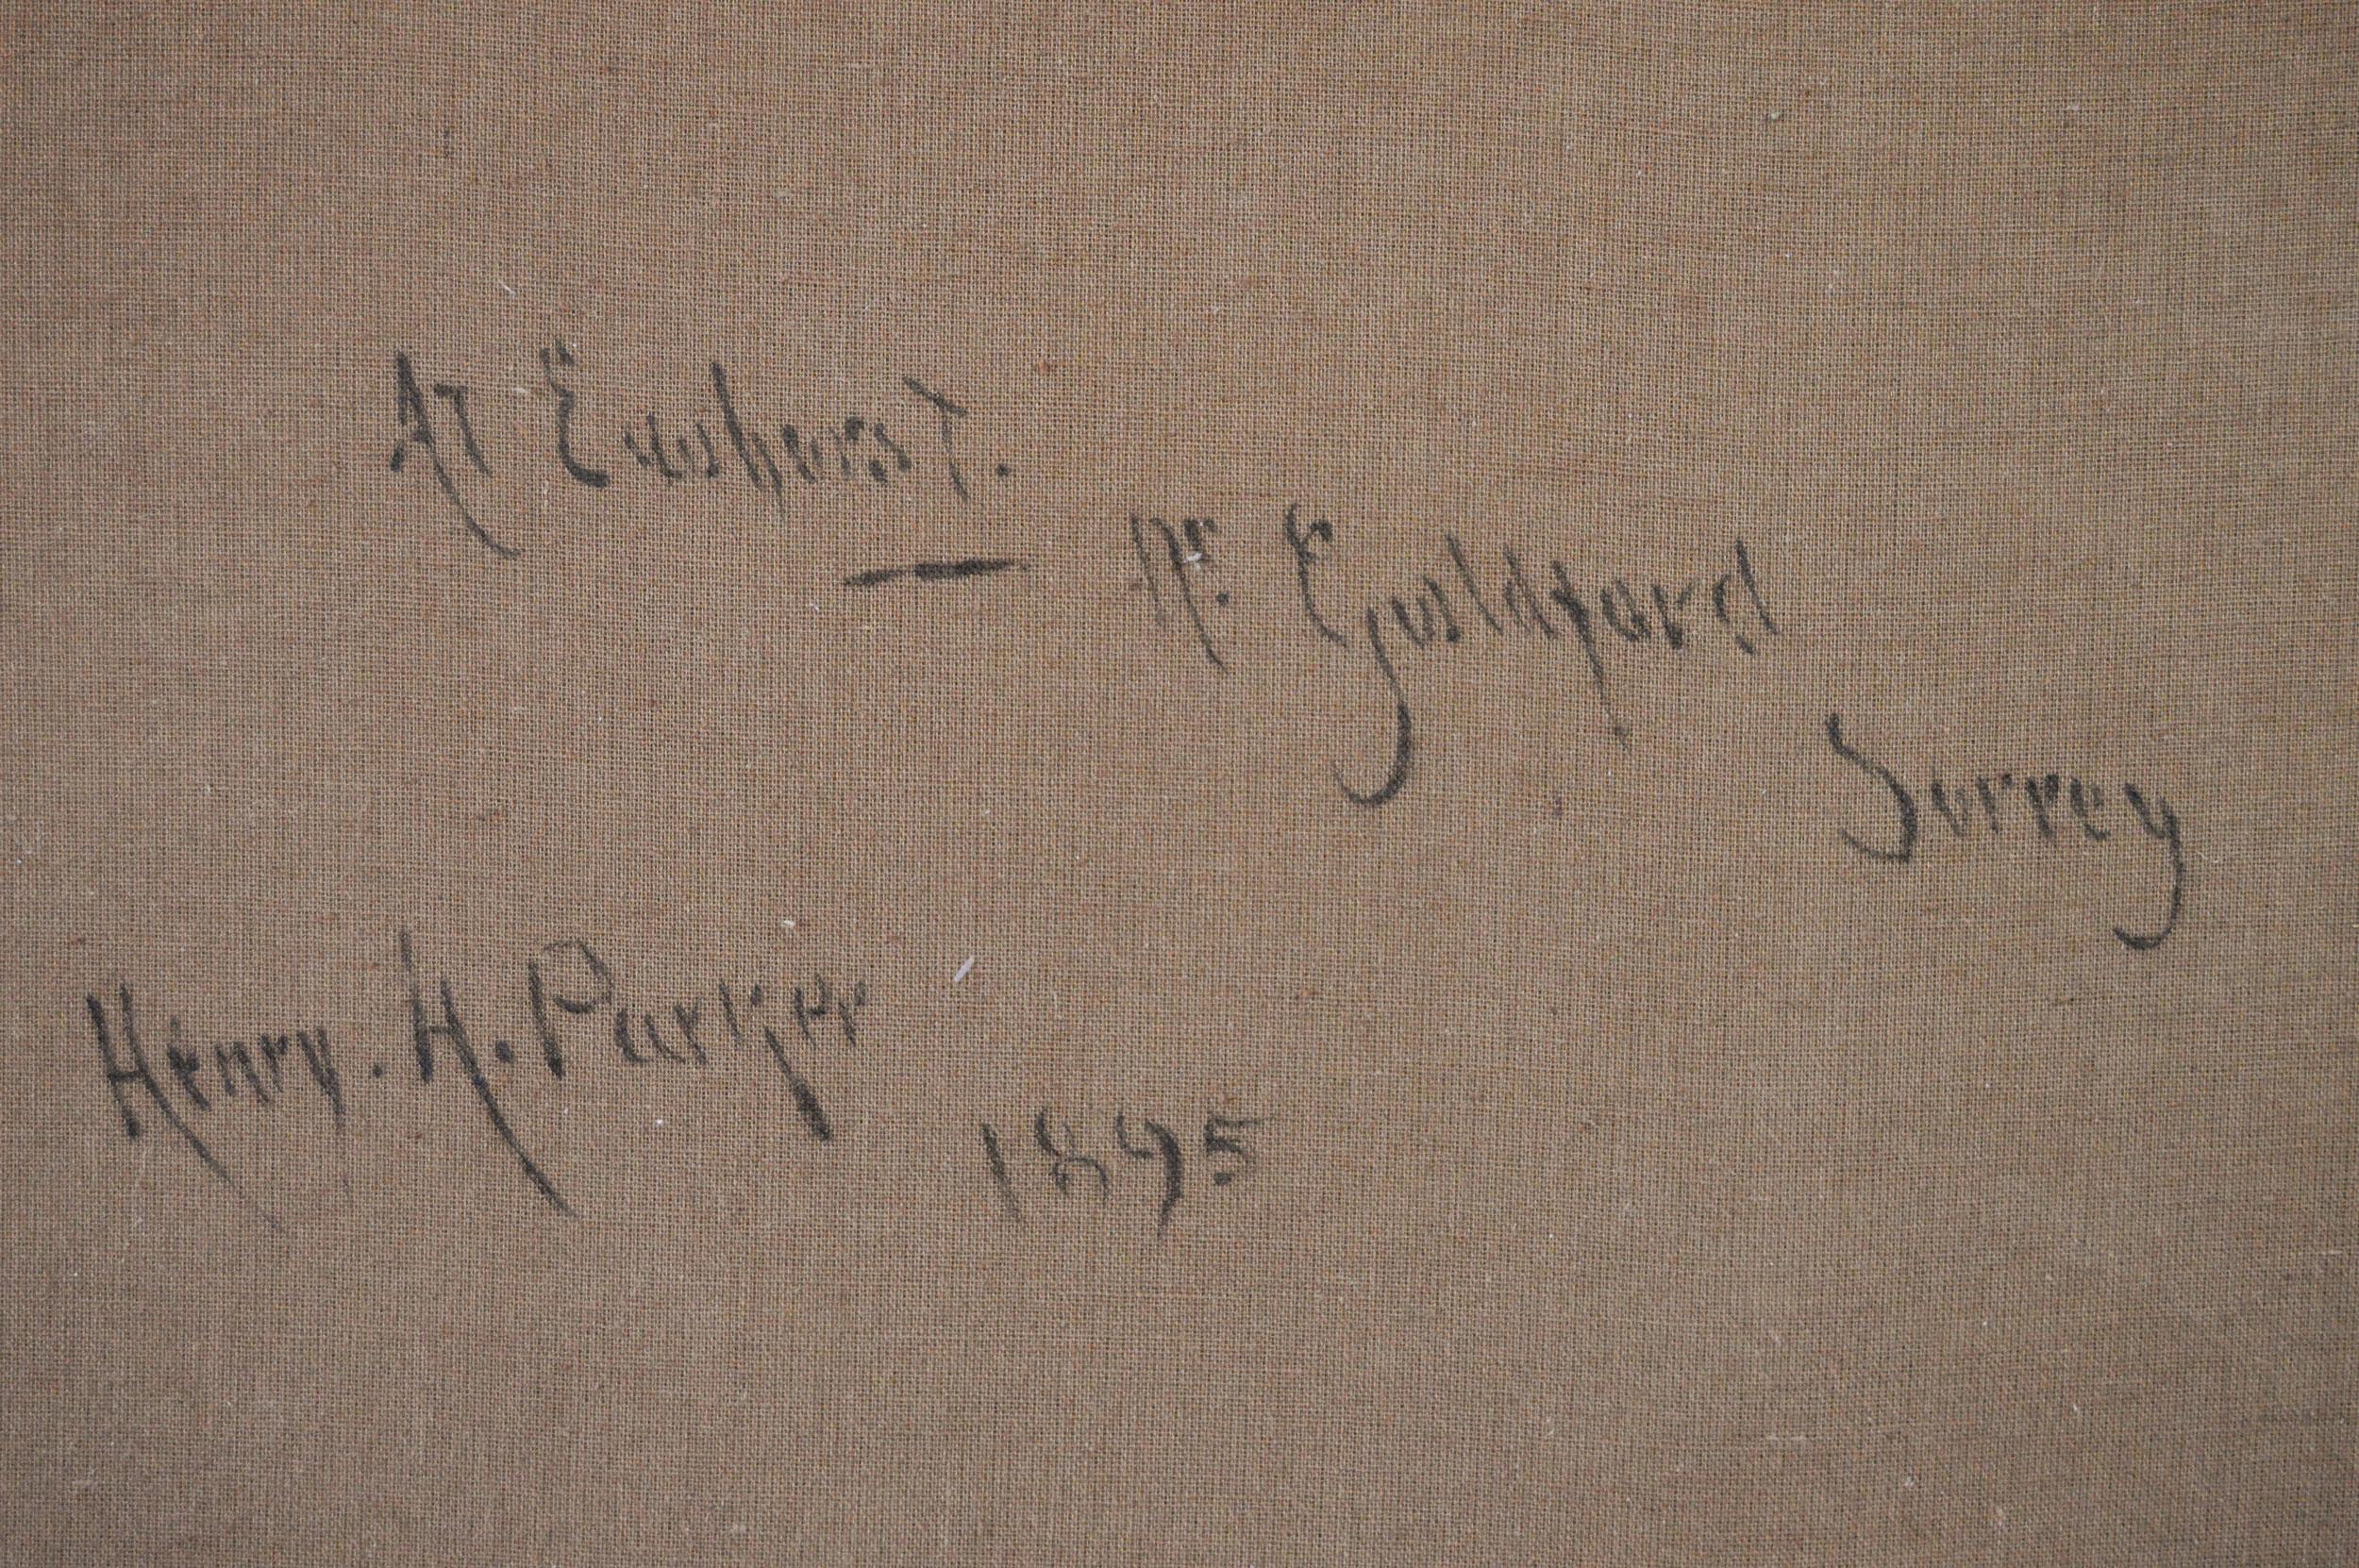 At Ewhurst.
— Nr. Guildford
Surrey
Henry. H. Parker
1895